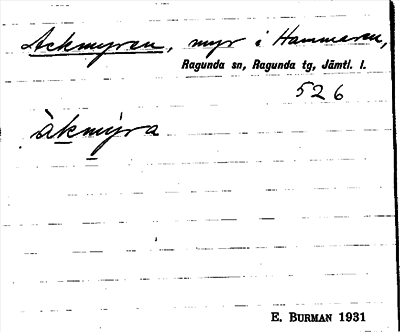 Ackmyren, myr i Hammaren,
Ragunda sn, Ragunda tg, Jämtl. l.
526
àkmýra
E. BURMAN 1931